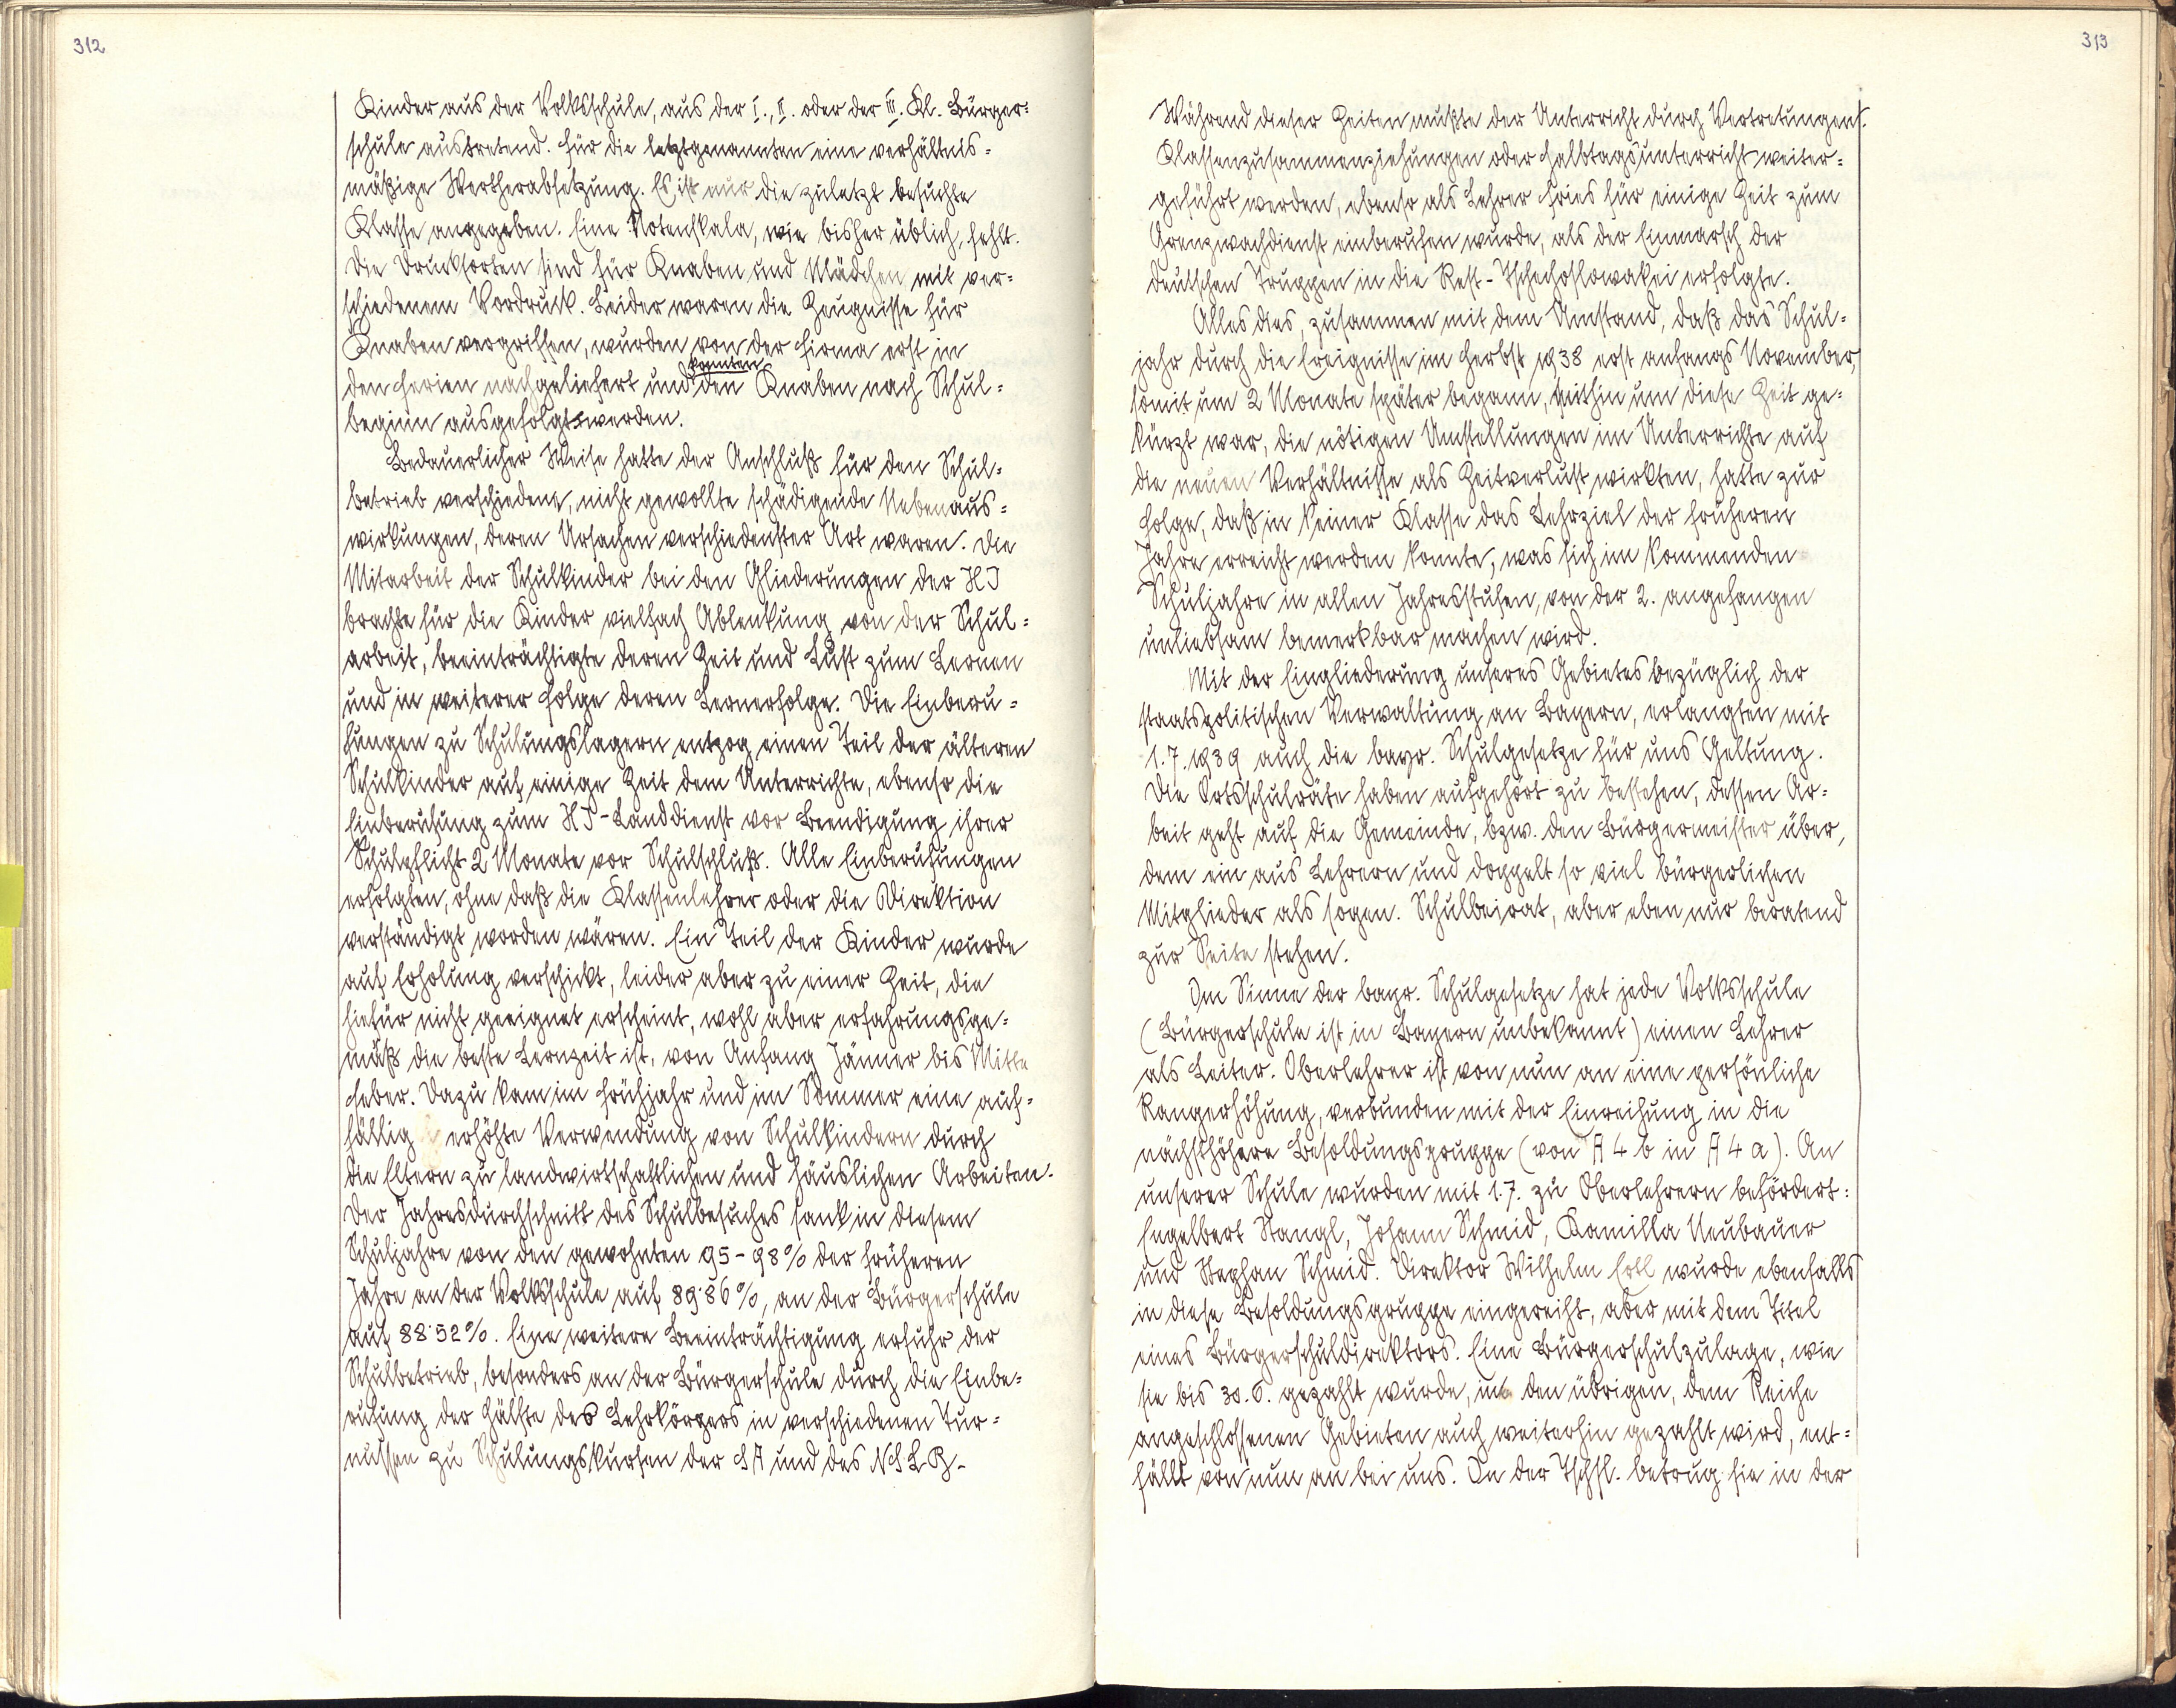 312
Kinder aus der Volksschule, aus der I., II. oder der III. Kl. Bürger=
schule austretend. Für die letztgenannten eine verhältnis=
mäßige Wertherabsetzung. Es ist nur die zuletzt besuchte
Klasse angegeben. Eine Notenskala, wie bisher üblich, fehlt.
Die Drucksorten sind für Knaben und Mädchen mit ver=
schiedenem Vordruck. Leider waren die Zeugnisse für
Knaben vergriffen, wurden von der Firma erst in
den Ferien nachgeliefert und konnten den Knaben nach Schul=
beginn ausgefolgt werden.
Bedauerlicher Weise hatte der Anschluß für den Schul=
betrieb verschiedene, nicht gewollte schädigende Nebenaus=
wirkungen, deren Ursachen verschiedenster Art waren. Die
Mitarbeit der Schulkinder bei den Gliederungen der HJ
brachte für die Kinder vielfach Ablenkung von der Schul=
arbeit, beeinträchtigte deren Zeit und Lust zum Lernen
und in weiterer Folge deren Lernerfolge. Die Einberu=
fungen zu Schulungslagern entzog einen Teil der älteren
Schulkinder auf einige Zeit dem Unterrichte, ebenso die
Einberufung zum HJ-Landdienst vor Beendigung ihrer
Schulpflicht 2 Monate vor Schulschluß. Alle Einberufungen
erfolgten, ohne daß die Klassenlehrer oder die Direktion
verständigt worden wären. Ein Teil der Kinder wurde
auf Erholung verschickt, leider aber zu einer Zeit, die
hiefür nicht geeignet erscheint, wohl aber erfahrungsge=
mäß die beste Lernzeit ist, von Anfang Jänner bis Mitte
Feber. Dazu kam im Frühjahr und im Sommer eine auf=
fällig erhöhte Verwendung von Schulkindern durch
die Eltern zu landwirtschaftlichen und häuslichen Arbeiten.
Der Jahresdurchschnitt des Schulbesuches sank in diesem
Schuljahre von den gewohnten 95-98% der früheren
Jahre an der Volksschule auf 89·86%, an der Bürgerschule
auf 88·52%. Eine weitere Beeinträchtigung erfuhr der
Schulbetrieb, besonders an der Bürgerschule durch die Einbe=
rufung der Hälfte des Lehrkörpers in verschiedenen Tur=
nussen zu Schulungskursen der SA und des NSLB.
313
Während dieser Zeiten mußte der Unterricht durch Vertretungen,
Klassenzusammenziehungen oder Halbtagsunterricht weiter=
geführt werden, ebenso als Lehrer Fries für einige Zeit zum
Grenzwachdienst einberufen wurde, als der Einmarsch der
deutschen Truppen in die Rest-Tschechoslowakei erfolgte.
Alles dies, zusammen mit dem Umstand, daß das Schul=
jahr durch die Ereignisse im Herbst 1938 erst anfangs November,
somit um 2 Monate später begann, mithin um diese Zeit ge=
kürzt war, die nötigen Umstellungen im Unterrichte auf
die neuen Verhältnisse als Zeitverlust wirkten, hatte zur
Folge, daß in keiner Klasse das Lehrziel der früheren
Jahre erreicht werden konnte, was sich im kommenden
Schuljahre in allen Jahresstufen, von der 2. angefangen
unliebsam bemerkbar machen wird.
Mit der Eingliederung unseres Gebietes bezüglich der
staatspolitischen Verwaltung an Bayern, erlangten mit
1.7.1939 auch die bayr. Schulgesetze für uns Geltung.
Die Ortsschulräte haben aufgehört zu bestehen, dessen Ar=
beit geht auf die Gemeinde, bzw. den Bürgermeister über,
dem ein aus Lehrern und doppelt so viel bürgerlichen
Mitglieder als sogen. Schulbeirat, aber eben nur beratend
zur Seite stehen.
Im Sinne der bayr. Schulgesetze hat jede Volksschule
(Bürgerschule ist in Bayern unbekannt) einen Lehrer
als Leiter. Oberlehrer ist von nun an eine persönliche
Rangerhöhung, verbunden mit der Einreihung in die
nächsthöhere Besoldungsgruppe (von A 4 b in A 4 a). An
unserer Schule wurden mit 1.7. zu Oberlehrern befördert:
Engelbert Stangl, Johann Schmid, Kamilla Neubauer
und Stephan Schmid. Direktor Wilhelm Ertl wurde ebenfalls
in diese Besoldungsgruppe eingereiht, aber mit dem Titel
eines Bürgerschuldirektors. Eine Bürgerschulzulage, wie
sie bis 30.6. gezahlt wurde, in den übrigen, dem Reiche
angeschlossenen Gebieten auch weiterhin gezahlt wird, ent=
fällt von nun an bei uns. In der Tschsl. betrug sie in der